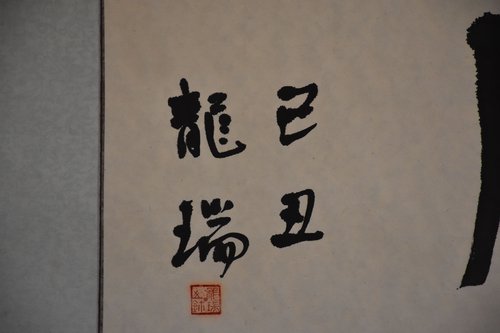 己丑
龍瑞